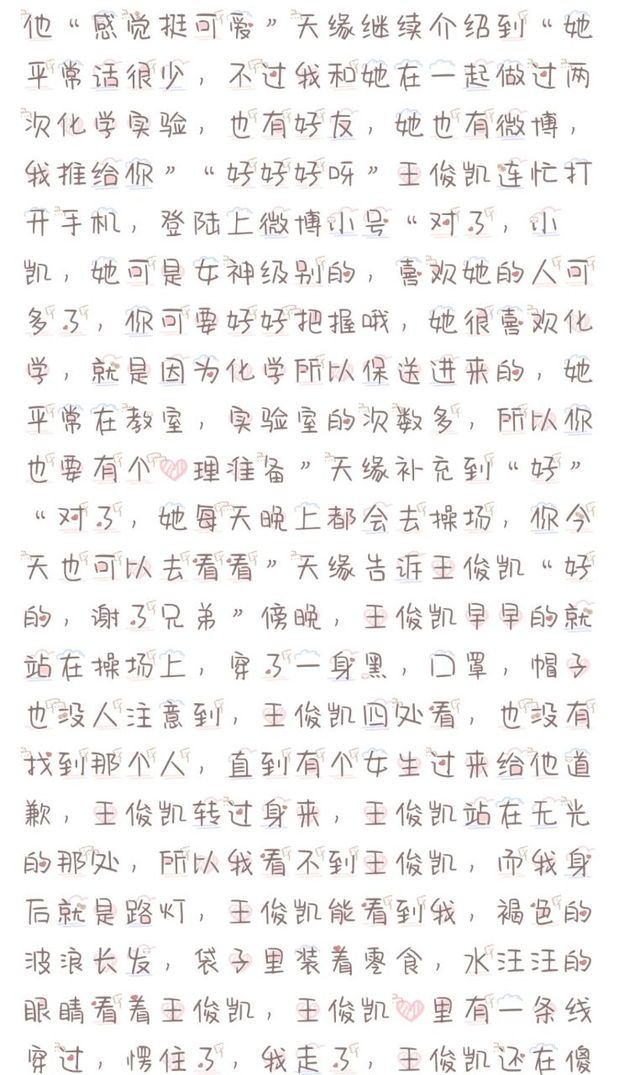 他“感觉挺可爱”天缘继续介绍到“她
平常话很少，不过我和她在一起做过两
次化学实验，也有好友，她也有微博，
我推给你”“好好好呀”王俊凯连忙打
开手机，登陆上微博小号“对了，小
凯，她可是女神级别的，喜欢她的人可
多了，你可要好好把握哦，她很喜欢化
学，就是因为化学所以保送进来的，她
平常在教室，实验室的次数多，所以你
也要有个❤理准备”天缘补充到“好”
“对了，她每天晚上都会去操场，你今
天也可以去看看”天缘告诉王俊凯“好
的，谢了兄弟”傍晚，王俊凯早早的就
站在操场上，穿了一身黑，口罩，帽子
也没人注意到，王俊凯四处看，也没有
找到那个人，直到有个女生过来给他道
歉，王俊凯转过身来，王俊凯站在无光
的那处，所以我看不到王俊凯，而我身
后就是路灯，王俊凯能看到我，褐色的
波浪长发，袋子里装着零食，水汪汪的
眼睛看着王俊凯，王俊凯❤里有一条线
穿过，愣住了，我走了，王俊凯还在傻